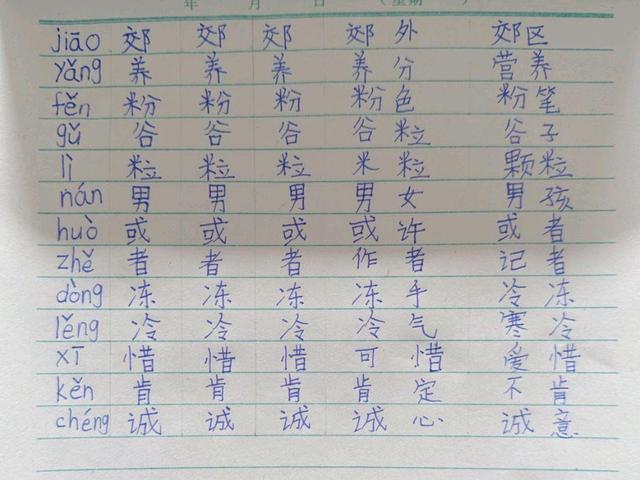 年 月 日 （星期 ）
jiāo 郊 郊 郊 郊外 郊区
yǎng 养 养 养 养分 营养
fěn 粉 粉 粉 粉色 粉笔
gǔ 谷 谷 谷 谷粒 谷子
lì 粒 粒 粒 米粒 颗粒
nán 男 男 男 男女 男孩
huò 或 或 或 或许 或者
zhě 者 者 者 作者 记者
dòng 冻 冻 冻 冻手 冷冻
lěng 冷 冷 冷 冷气 寒冷
xī 惜 惜 惜 可惜 爱惜
kěn 肯 肯 肯 肯定 不肯
chéng 诚 诚 诚 诚心 诚意